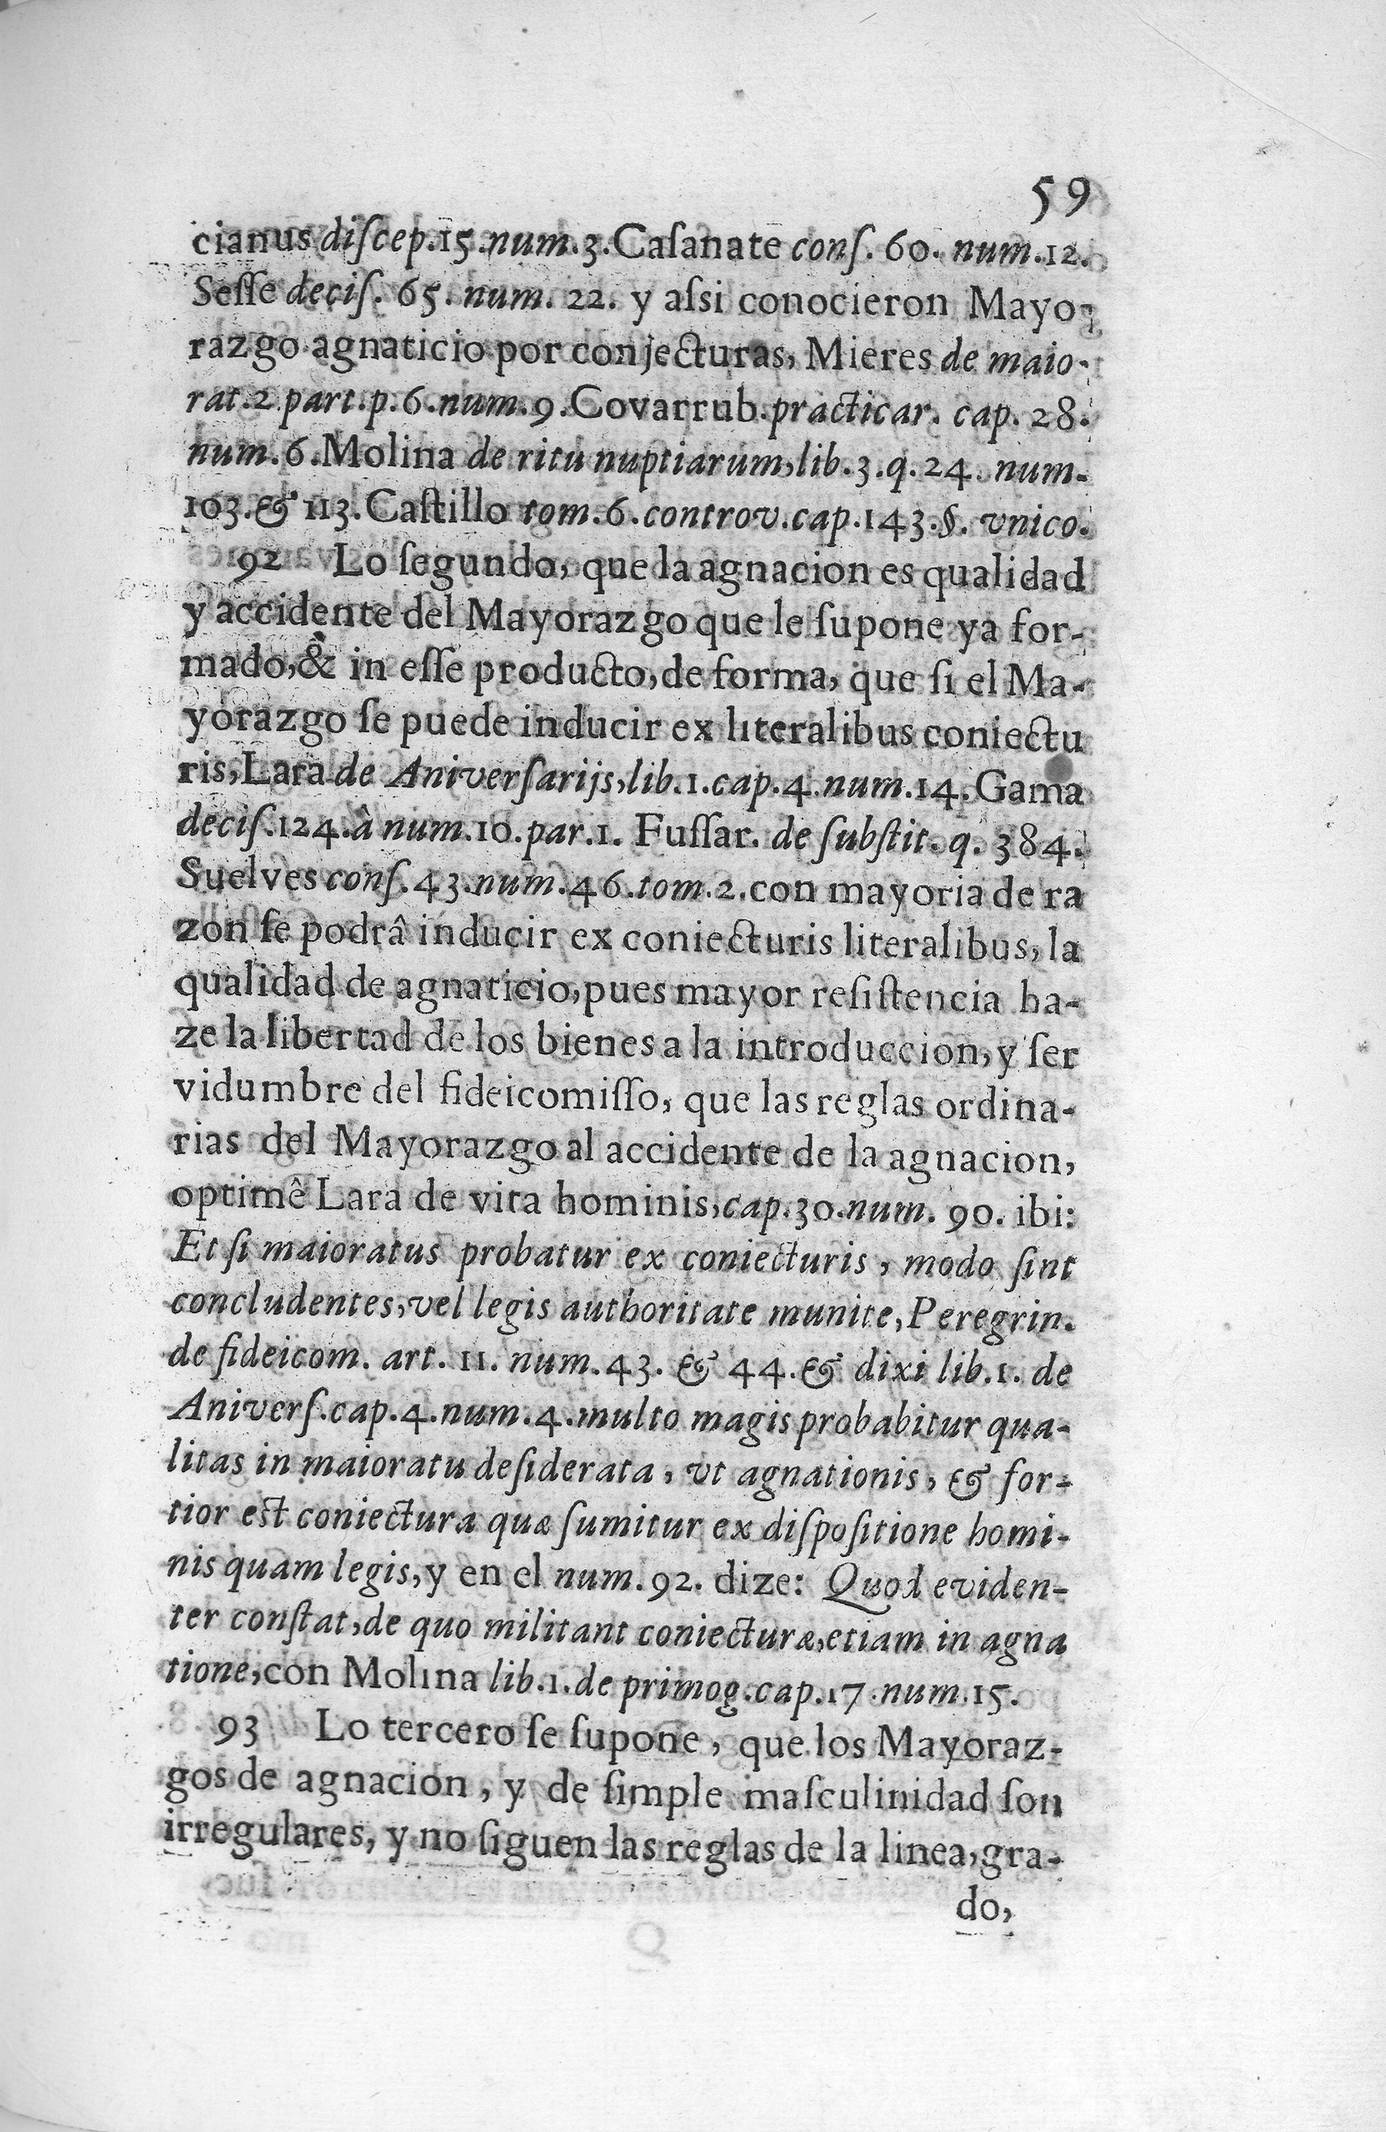 59
cianus diſcep.15.num.3.Caſanate conſ. 60. num.12.
Seſſe deciſ. 65. num. 22. y aſsi conocieron Mayo-
razgo agnaticio por conjecturas, Mieres de maio-
rat.2.part.p.6.num.9.Covarrub.practicar. cap. 28.
num.6.Molina de ritu nuptiarum,lib.3.q.24. num.
103.& 113.Caſtillo tom.6.controv.cap.143.§. vnico.
92 Lo ſegundo, que la agnacion es qualidad
y accidente del Mayorazgo que le ſupone ya for-
mado,& in eſſe producto,de forma, que ſi el Ma-
yorazgo ſe puede inducir ex literalibus coniectu
ris,Lara de Aniverſarijs,lib.1.cap.4.num.14.Gama
deciſ.124.â num.10.par.1. Fuſſar. de ſubſtit. q. 384.
Suelves conſ.43.num.46.tom.2.con mayoria de ra
zon ſe podrâ inducir ex coniecturis literalibus, la
qualidad de agnaticio,pues mayor reſiſtencia ha-
ze la libertad de los bienes a la introduccion, y ſer
vidumbre del fideicomiſſo, que las reglas ordina-
rias del Mayorazgo al accidente de la agnacion,
optimê Lara de vita hominis,cap.30.num. 90. ibi:
Et ſi maioratus probatur ex coniecturis, modo ſint
concludentes,vel legis authoritate munite,Peregrin.
de fideicom. art. 11. num.43. & 44.& dixi lib.1. de
Aniverſ.cap.4.num.4.multo magis probabitur qua-
litas in maioratu deſiderata, vt agnationis, & for-
tior eſt coniectura quæ ſumitur ex diſpoſitione homi-
nis quam legis,y en el num.92. dize: Quod eviden-
ter conſtat,de quo militant coniecturæ,etiam in agna
tione,con Molina lib.1.de primog.cap.17.num.15.
93 Lo tercero ſe ſupone, que los Mayoraz-
gos de agnacion, y de ſimple maſculinidad ſon
irregulares, y no ſiguen las reglas de la linea,gra-
do,